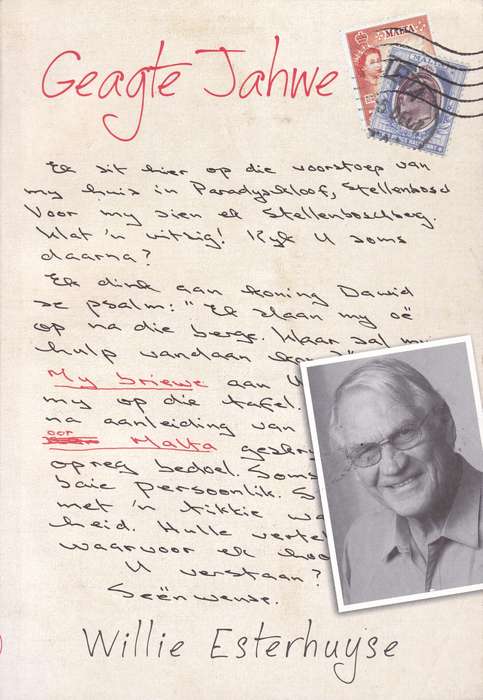 Geagte Jahwe
MALTA
Ek sit hier op die voorstoep van
my huis in Paradyskloof, Stellenbosch
Voor my sien ek Stellenboschberg.
Wat 'n uitsig! Kyk U soms
daarna?
Ek dink aan koning Dawid
se psalm: "Ek slaan my oë
op na die berge. Waar sal my
hulp vandaan
My briewe aan U
my op die tafel.
na aanleiding van
oor
Malta geskry
opreg bedoel. Soms
baie persoonlik. S
met 'n tikkie wa
heid. Hulle vertel
waarvoor ek hoo
U verstaan?
Seënwense.
Willie Esterhuyse